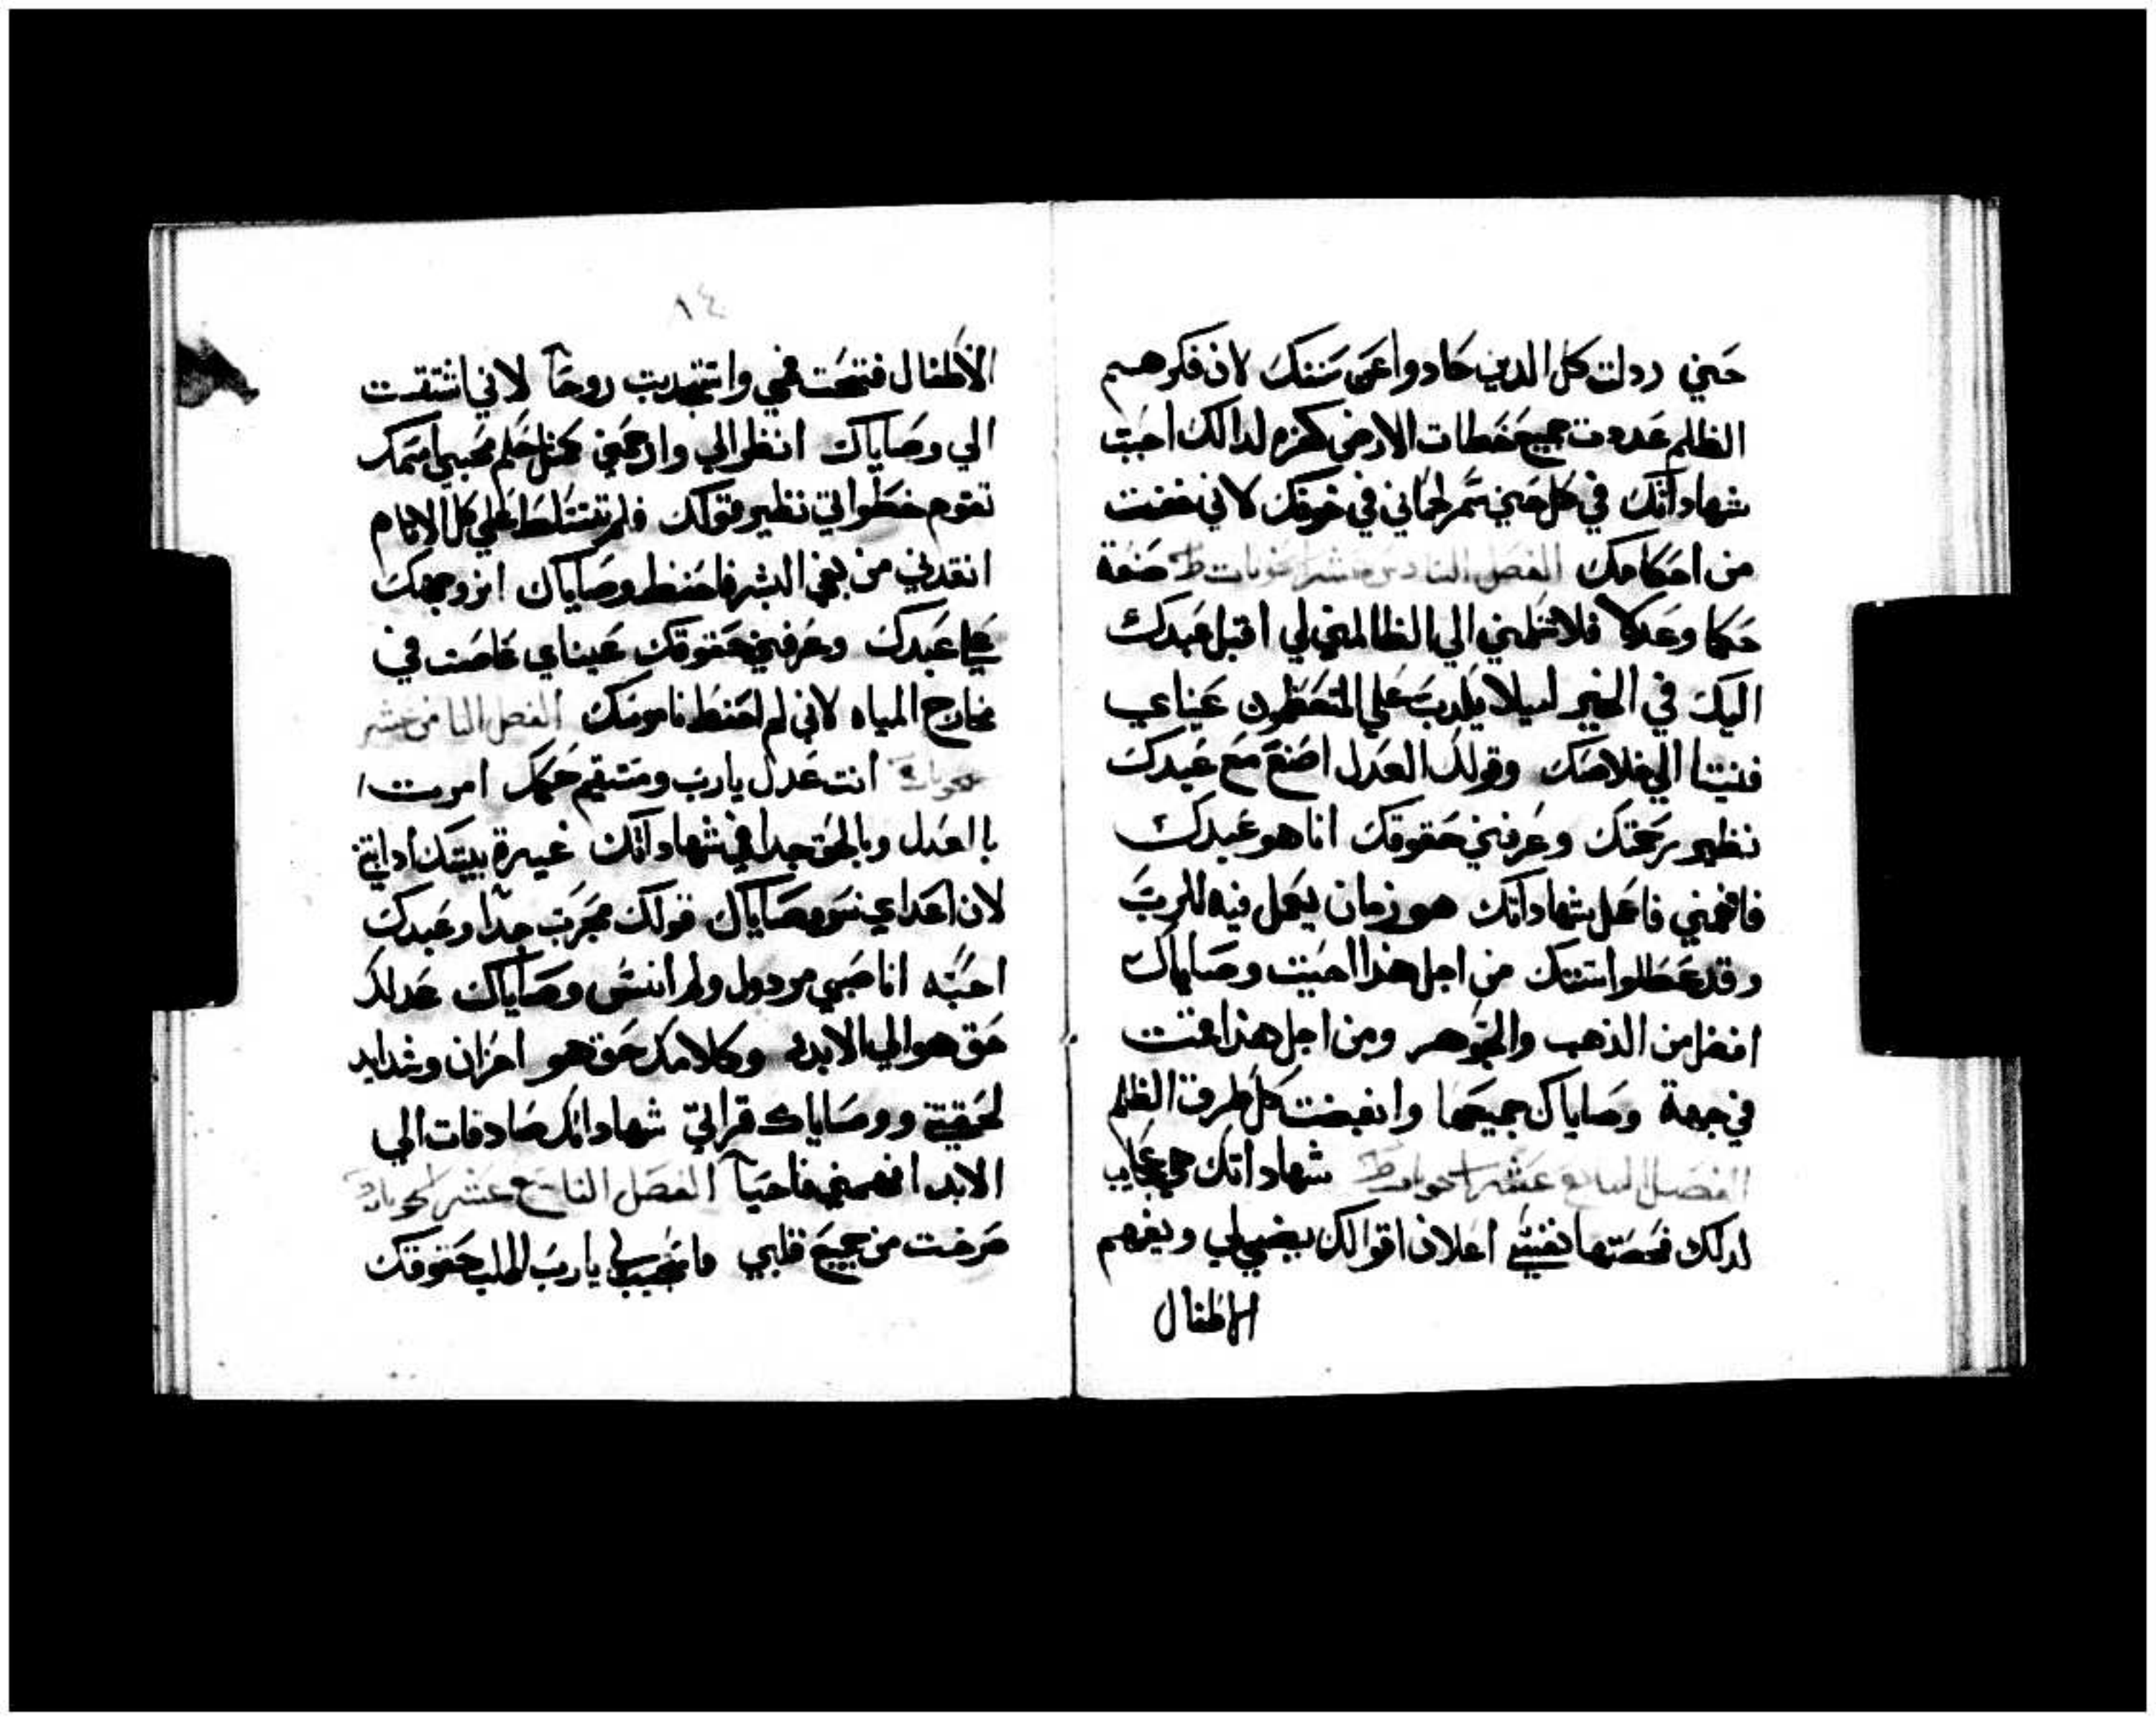 حين رذلت كل الدين حادوا عن سننك لان فكرهم
الظلم عددت جميع خطات الارض كهزء لدالك احببت
شهاداتك في كل حين سمر لحماني في خوفك لاني خفت
من احكامك الفصل السادس عشر اخوبات ط صنعة
حكما وعدلا فلا تسلمني الي الظالمين لي اقبل عبدك
اليك في الخير ليلا يكدب علي المتعظمون عيناي
فنيتا الي خلاصك وقولك العدل اصنع مع عبدك
نظير رحمتك وعرفني حقوقك انا هو عبدك
فافهمني فاعلم شهاداتك هو زمان يعمل فيه للرب
وقد عطلوا سنتك من اجل هذا احببت وصاياك
افضل من الذهب والجوهر ومن اجل هذا قمت
في جهة وصاياك جميعها وابغضت كل طرق الظلم
الفصل السابع عشر اخوبات ط شهاداتك هي عجايب
لدلك فحصتها نفسي اعلان اقوالك يضي لي ويفهم
الاطفال
٨٤
الاطفال فتحت فمي واستجدبت روحاً لاني اشتقت
الي وصاياك انظر الي وارحمني كمثل حكم محبي اسمك
تقوم خطواتي نظير قولك فلم تتسلط علي كل الاثام
انقدني من بغي البشر فاحفظ وصاياك انر وجهك
علي عبدك وعرفني حقوقك عيناي غاصت في
مخارج المياه لاني لم احفظ ناموسك الفصل الثامن عشر
انت عدل يارب ومستقيم حكمك امرت
باالعدل وبالحق جدا في شهاداتك غيرة بيتك ادابتني
لان اعداي نسوا وصاياك قولك مجرب جداً وعبدك
احبه انا صبي مردول ولم انس وصاياك عدلك
حق هو الي الابد وكلامك حق هو احزان وشدايد
لحقتني ووصاياك قراتي شهاداتك صادقات الي
الابد افهمني فاحياً الفصل التاسع عشر
صرخت من جميع قلبي فاستجيب لي يارب اطلب حقوقك